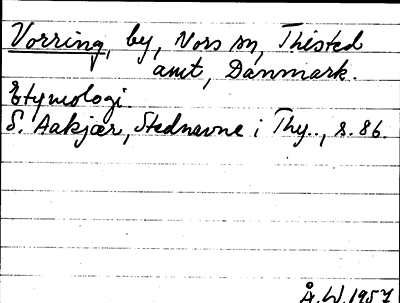 Vorring, by, Nors sn, Thisted
amt, Danmark.
Etymologi.
S. Aakjær, Stednavne i Thy.., s. 86.
Å.W. 1957